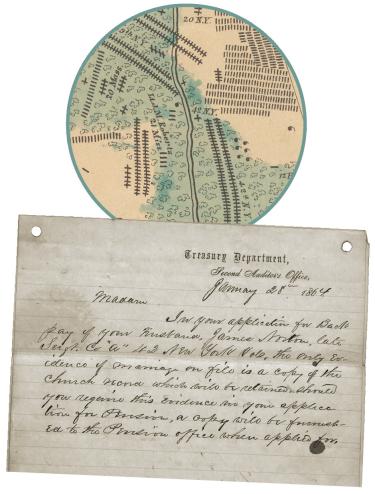 20 N.Y.
20 Mass.
2 Miss.
42 N.Y.
Treasury Department,
Second Auditor's Office,
January 28th 1864
Madam
In your application for Back
pay of your Husband, James Norton, late
Sergt. Co "A" 42 New York Vols, the only Ev-
idence of marriage on file is a copy of the
Church record which will be retained should
you require this Evidence in your applica-
tion for Pension, a copy will be furnish-
ed to the Pension office when applied for.